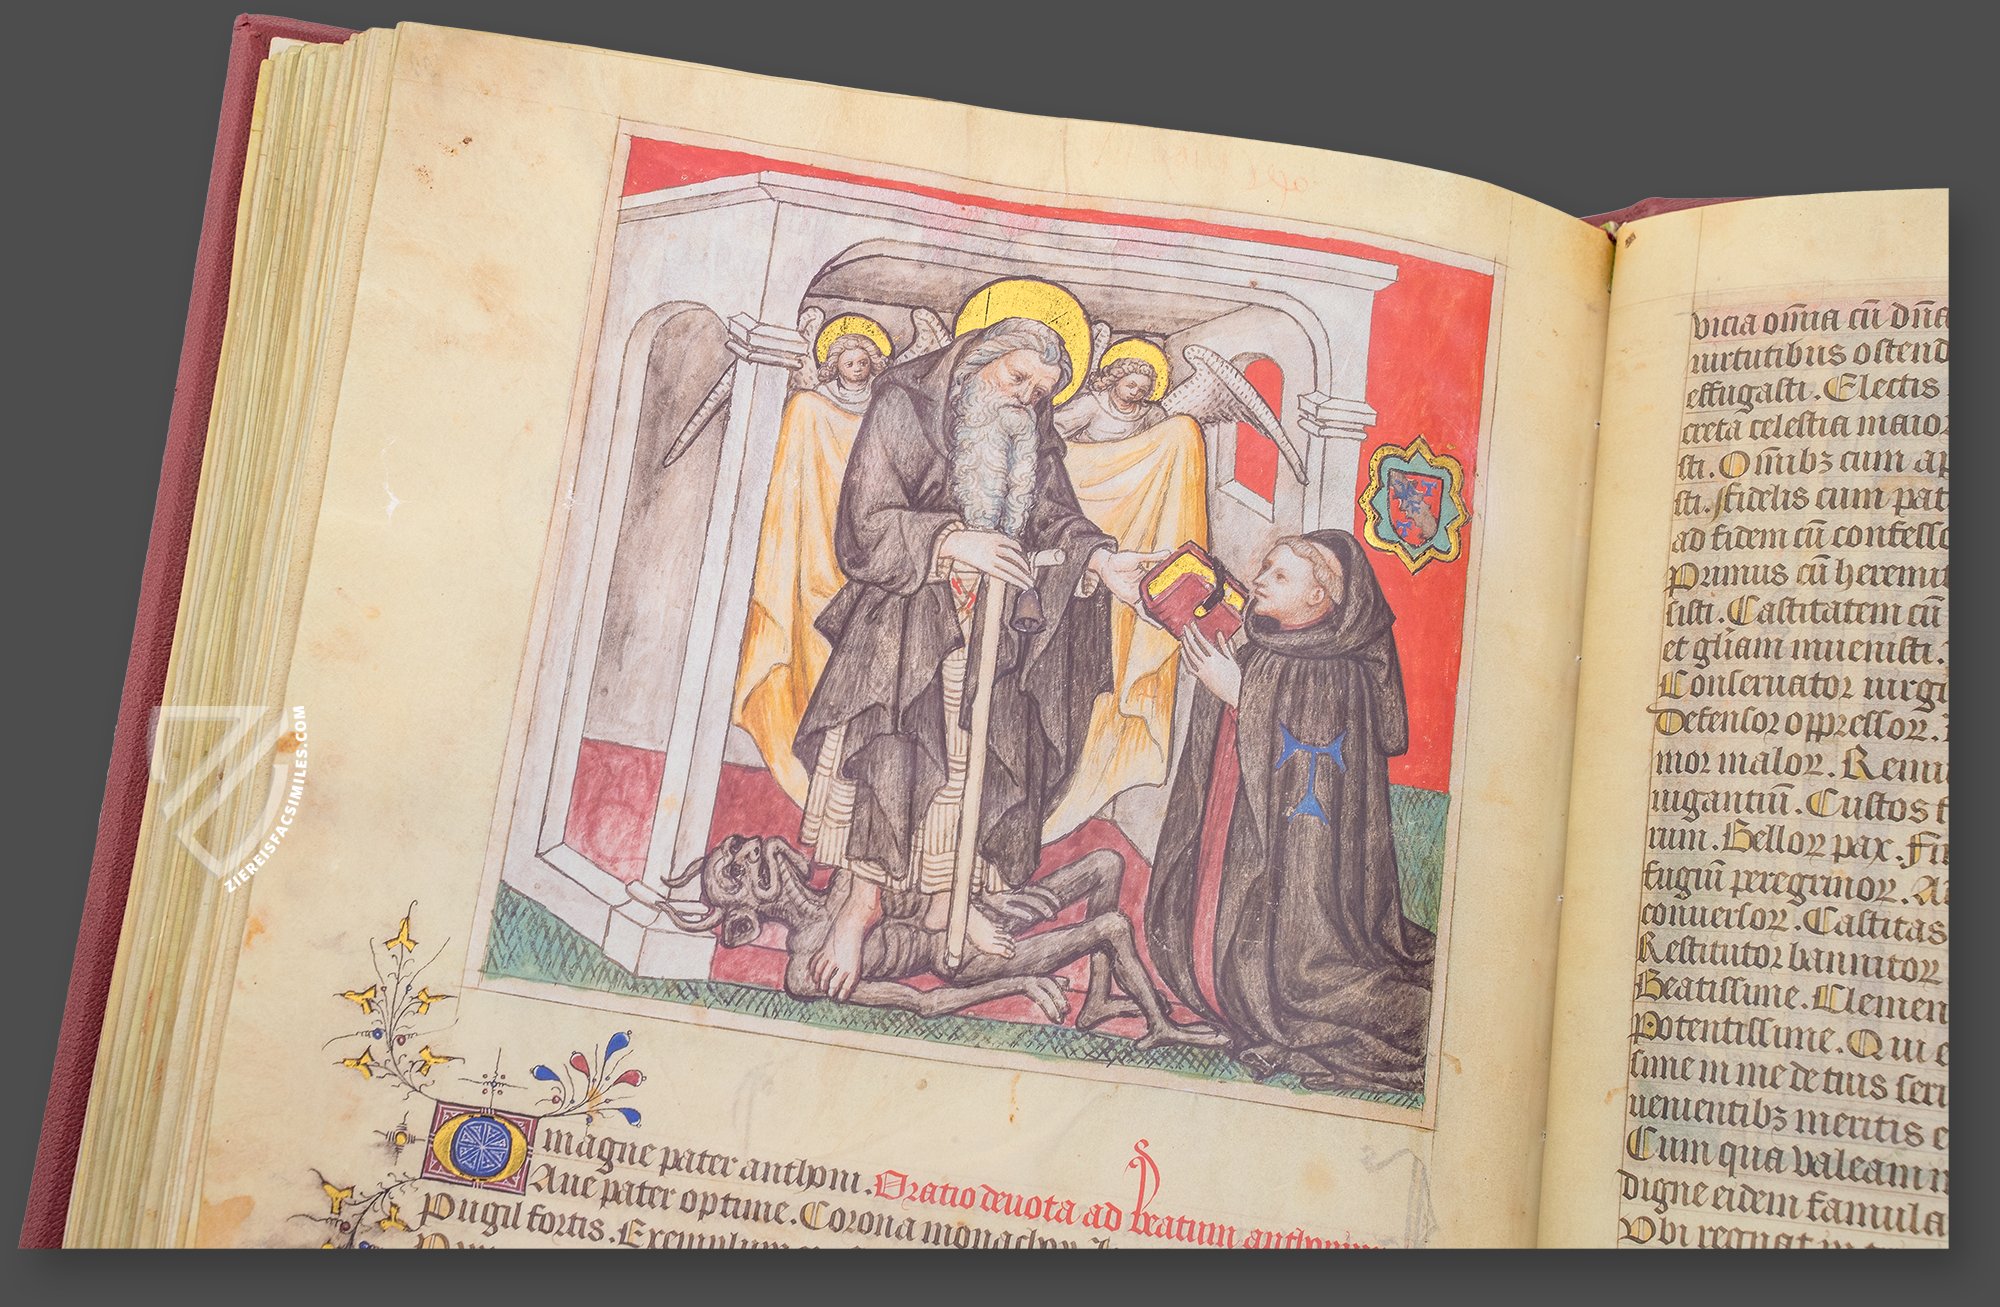 O magne pater anthoni. Oratio deuota ad beatum anthonium
Aue pater optime. Corona monachor
Pugil fortis. Exemplum
vicia om̄ia cū dn̄a
uirtutibus ostend
effugasti. Electis
creta celestia maior
sti. Om̄ibz cum ap
sti. Fidelis cum pat
ad fidem cū confesso
Primus cū heremit
sisti. Castitatem cū
et gl̄iam inuenisti.
Conseruator uirgi
Defensor oppressoꝝ.
mor maloꝝ. Remu
uigantiū. Custos
rum. Belloꝝ pax. Fi
fugiū peregrinoꝝ. A
conuersoꝝ. Castitas
Restitutor bannitoꝝ
Beatissime. Clemen
Potentissime. Qui e
sime in me de tuis seri
uenientibz meritis e
Cum qua valeam
digne eidem famula
Vbi regnat
ZIEREISFACSIMILES.COM